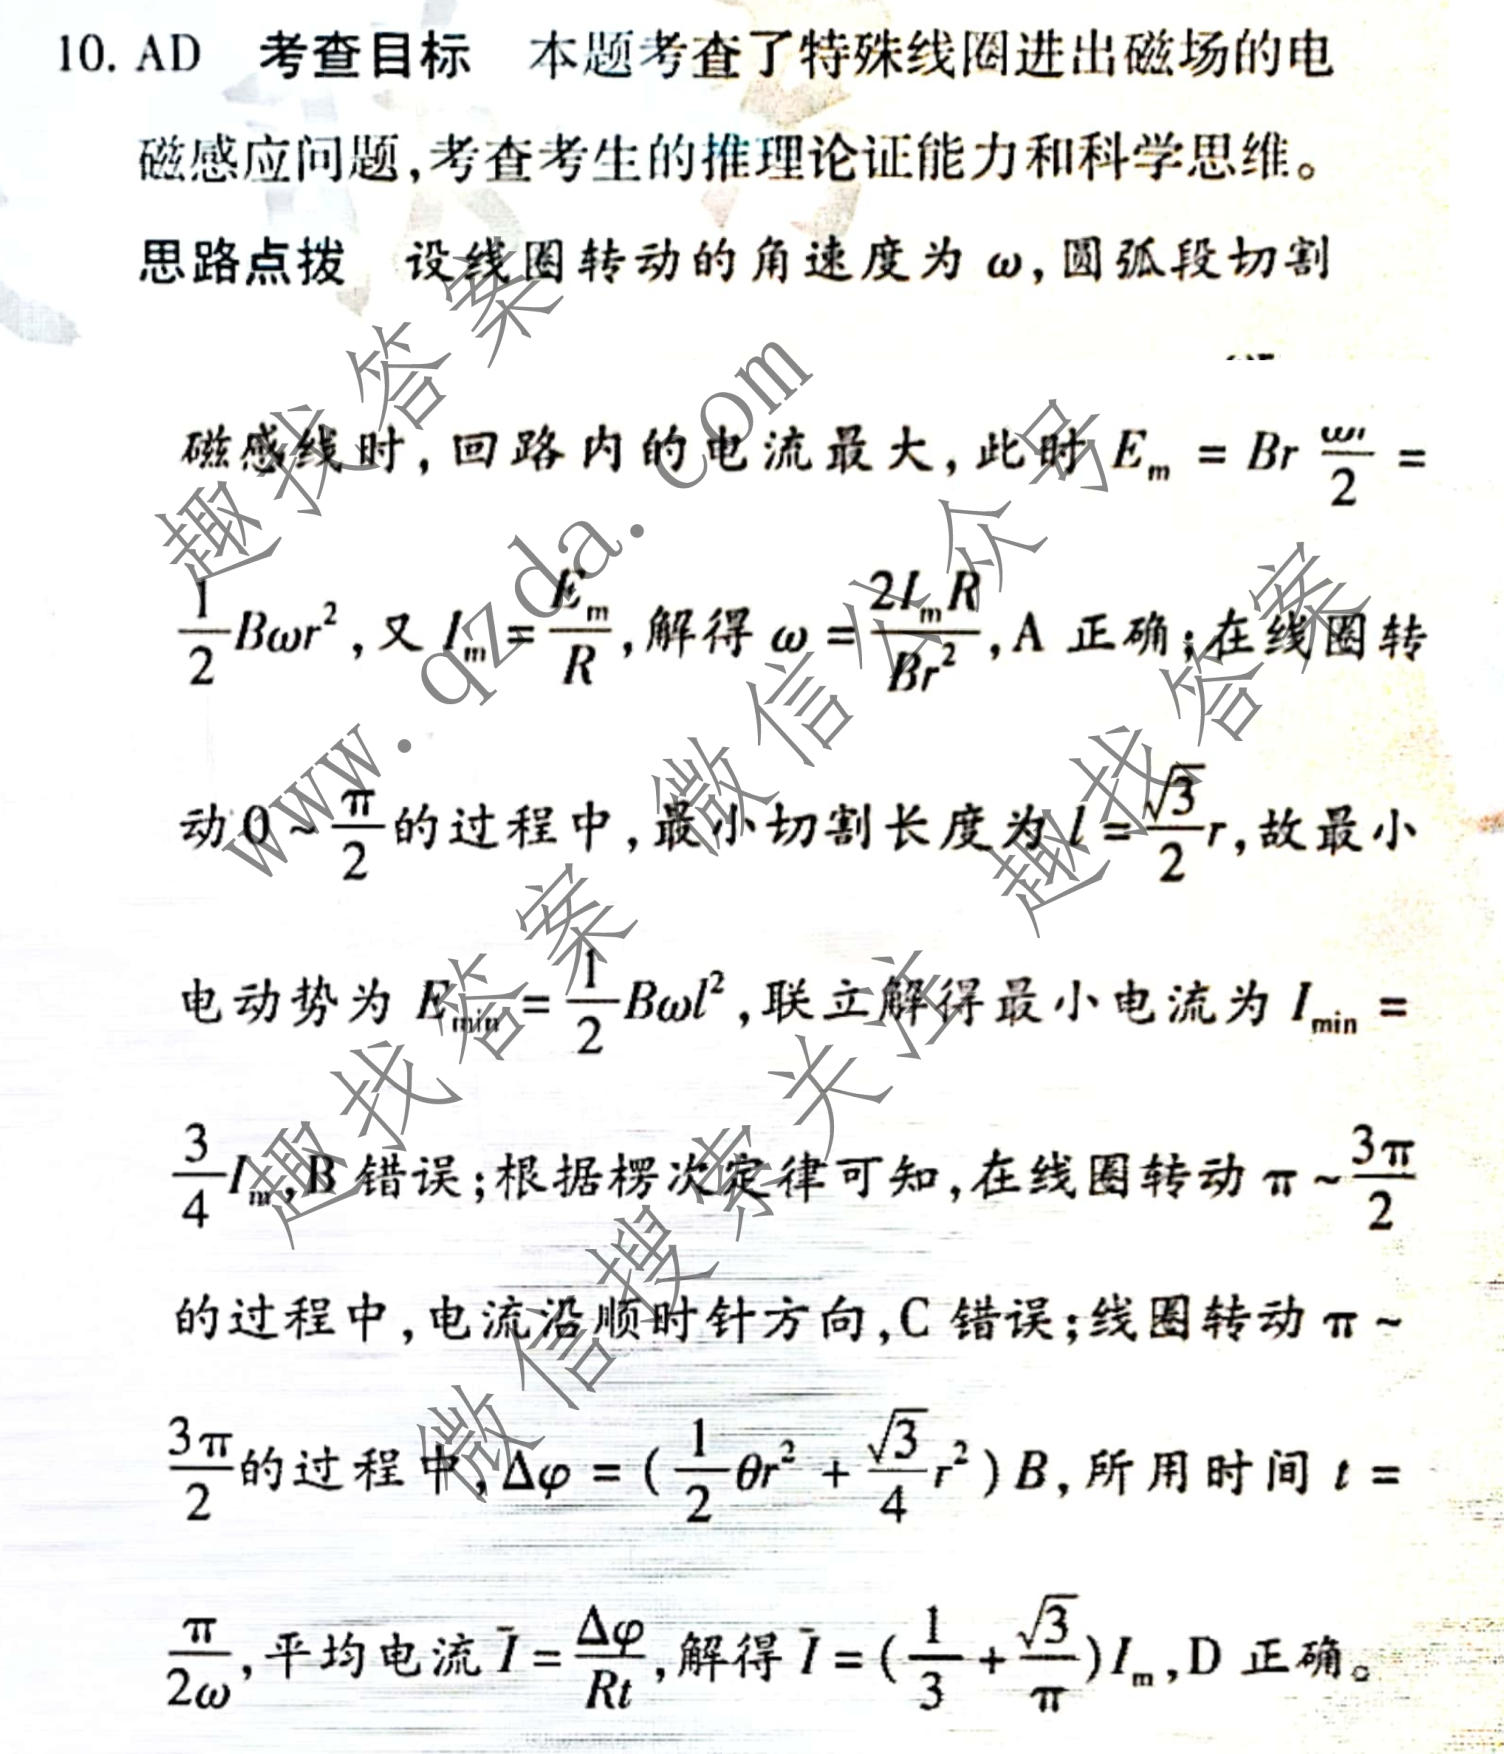 10. AD 考查目标 本题考查了特殊线圈进出磁场的电
磁感应问题,考查考生的推理论证能力和科学思维。
思路点拨 设线圈转动的角速度为 ω,圆弧段切割
磁感线时,回路内的电流最大,此时 E_m = Br ωr/2 =
1/2 Bωr²,又 I_m = E_m/R,解得 ω = 2I_mR/Br²,A 正确;在线圈转
动 0 ~ π/2 的过程中,最小切割长度为 l = √3/2 r,故最小
电动势为 E_min = 1/2 Bωl²,联立解得最小电流为 I_min =
3/4 I_m,B 错误;根据楞次定律可知,在线圈转动 π ~ 3π/2
的过程中,电流沿顺时针方向,C 错误;线圈转动 π ~
3π/2 的过程中,Δφ = (1/2 θr² + √3/4 r²)B,所用时间 t =
π/2ω,平均电流 Ī = Δφ/Rt,解得 Ī = (1/3 + √3/π)I_m,D 正确。
趣找答案
www.qzda.com
微信公众号
趣找答案
趣找答案
微信搜索关注